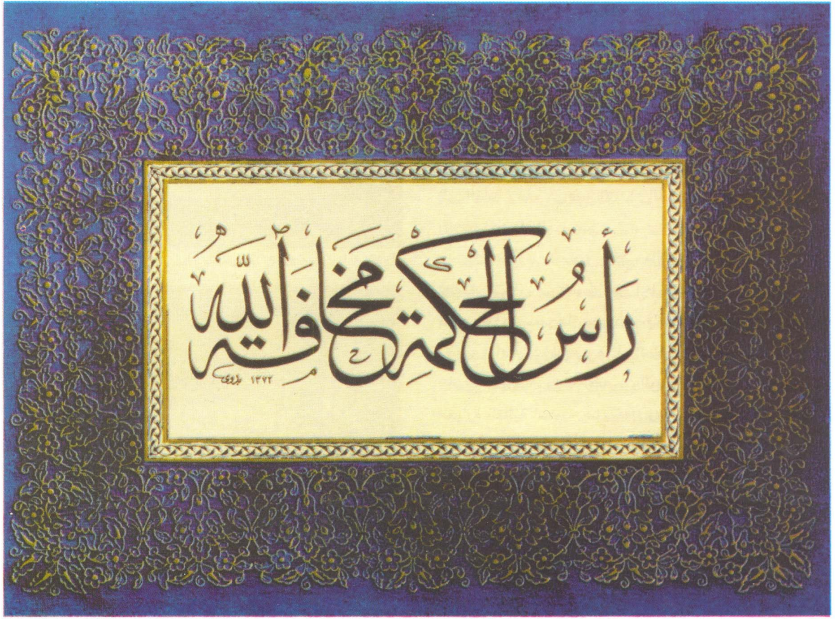 رَأْسُ الْحِكْمَةِ مَخَافَةُ اللّٰهِ
١٣٧٢